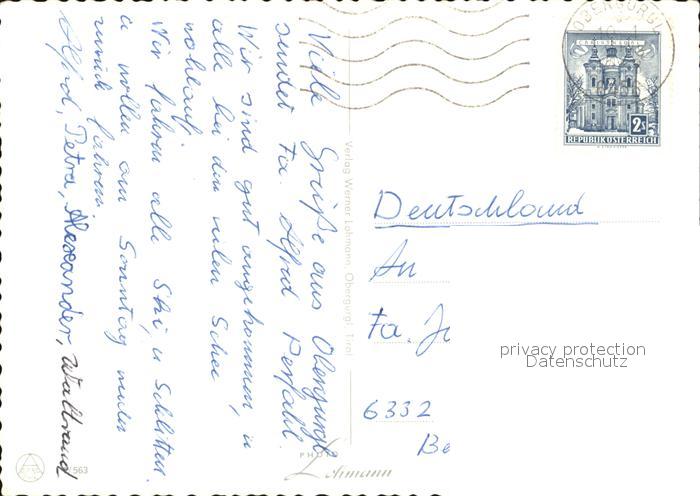 Viele Grüße aus Obergurgl
sendet Fa. Alfred
Wir sind gut angekommen, u
alle bei den vielen Schee
wohlauf.
Wir fahren alle Ski, u Schlitten.
u wollen am Sonntag wieder
zurück fahren.
Alfred, Petra, Alexander, Waltraud
Verlag Werner Lohmann, Obergurgl, Tirol
PHOTO
Lohmann
563
OBERGURGL
CHRISTKINDL
2 S
REPUBLIK ÖSTERREICH
Deutschland
An
Fa. J
6332
Be
privacy protection
Datenschutz